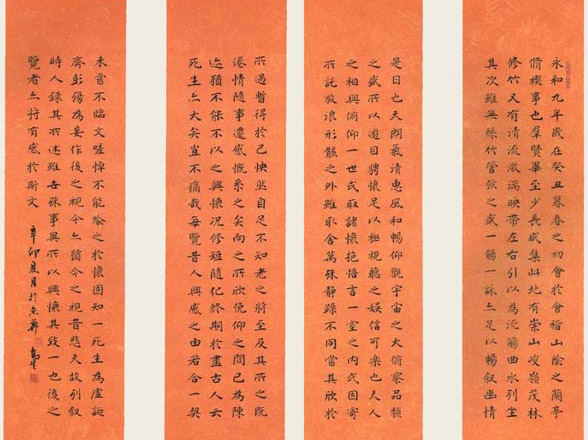 永和九年歲在癸丑暮春之初會於會稽山陰之蘭亭
脩禊事也羣賢畢至少長咸集此地有崇山峻嶺茂林
修竹又有清流激湍映帶左右引以為流觴曲水列坐
其次雖無絲竹管弦之盛一觴一詠亦足以暢叙幽情
是日也天朗氣清惠風和暢仰觀宇宙之大俯察品類
之盛所以遊目騁懷足以極視聽之娛信可樂也夫人
之相與俯仰一世或取諸懷抱悟言一室之內或因寄
所託放浪形骸之外雖取舍萬殊靜躁不同當其欣於
所遇暫得於己快然自足不知老之將至及其所之既
倦情隨事遷感慨系之矣向之所欣俛仰之間已為陳
迹猶不能不以之興懷況修短隨化終期於盡古人云
死生亦大矣豈不痛哉每覽昔人興感之由若合一契
未嘗不臨文嗟悼不能喻之於懷固知一死生為虛誕
齊彭殤為妄作後之視今亦猶今之視昔悲夫故列叙
時人錄其所述雖世殊事異所以興懷其致一也後之
覽者亦將有感於斯文 辛卯夏月於京華